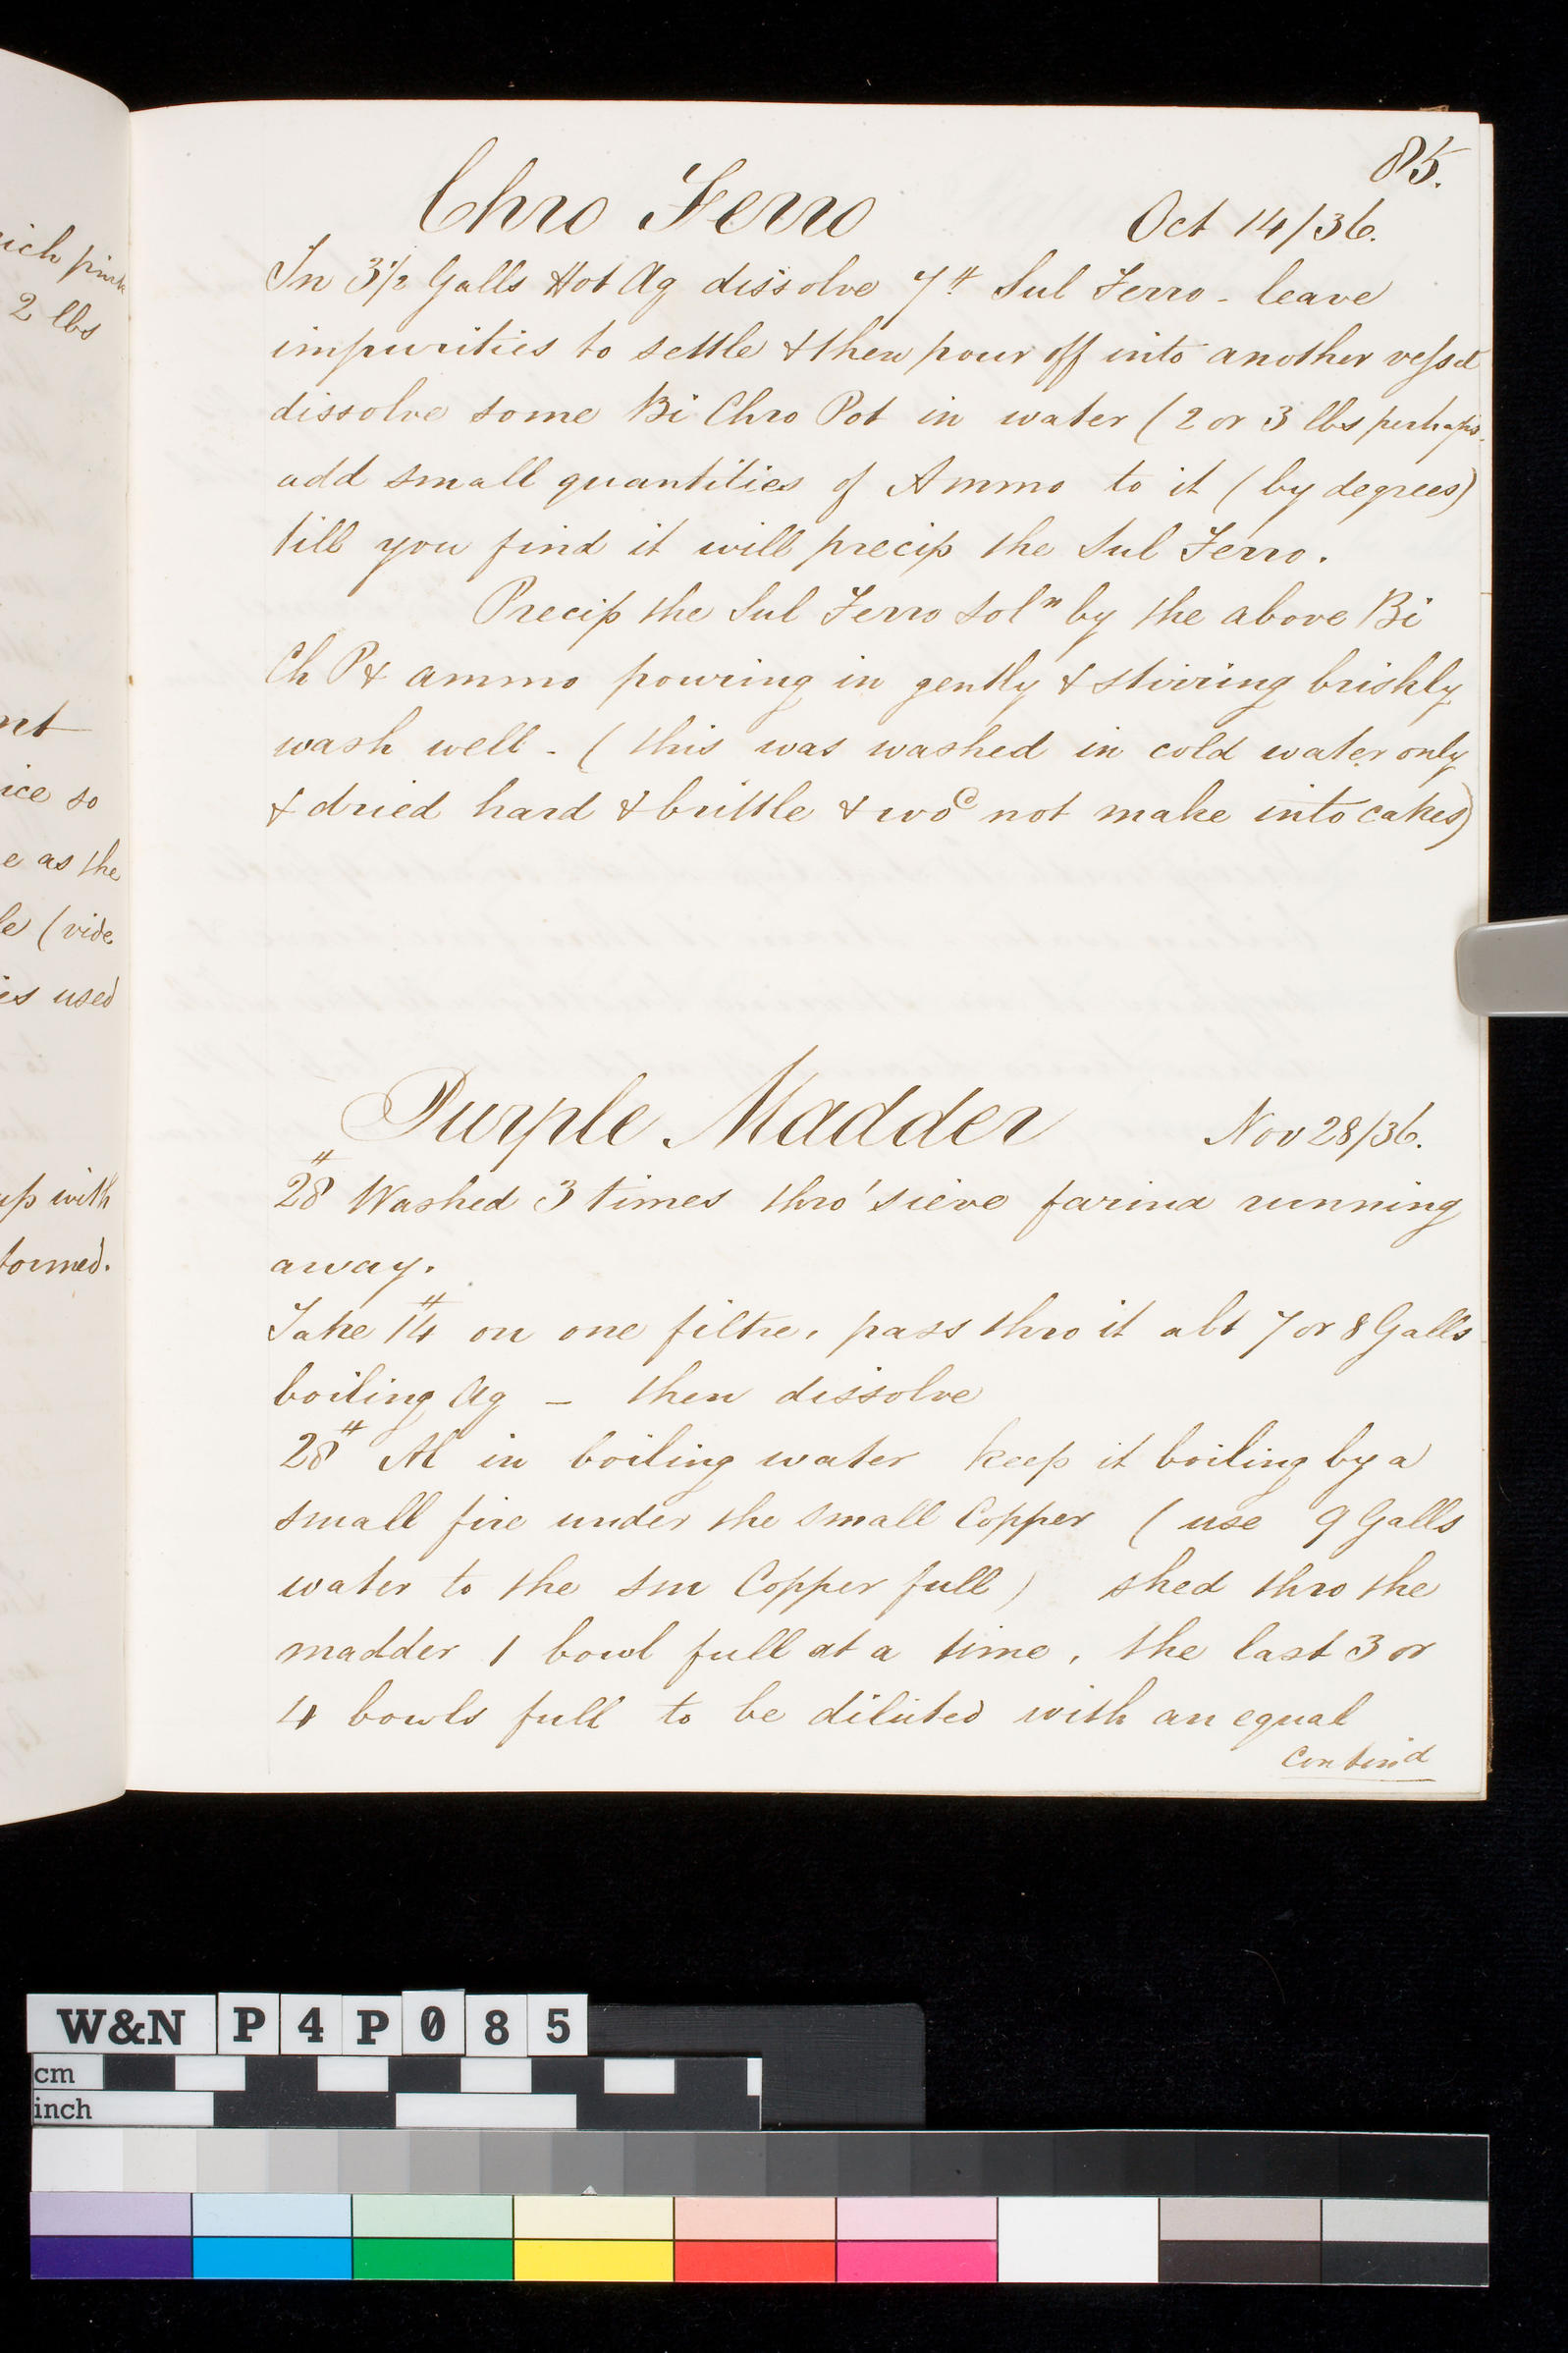 85.
Chro Ferro Oct 14/36.
In 3½ Galls Hot Aq dissolve 7# Sul Ferro - leave
impurities to settle & then pour off into another vessel
dissolve some Bi Chro Pot in water (2 or 3 lbs perhaps.
add small quantities of Ammo to it (by degrees)
till you find it will precip the Sul Ferro.
Precip the Sul Ferro Solⁿ by the above Bi
Ch P & ammo pouring in gently & stirring briskly
wash well - (this was washed in cold water only
& dried hard & brittle & woᵈ not make into cakes)
Purple Madder Nov 28/36.
28# Washed 3 times thro' sieve farina running
away.
Take 14# on one filtre, pass thro it abt 7 or 8 Galls
boiling Aq – then dissolve
28# Al in boiling water keep it boiling by a
small fire under the small Copper (use 9 Galls
water to the sm Copper full) shed thro the
madder 1 bowl full at a time, the last 3 or
4 bowls full to be diluted with an equal
Continᵈ
ich pink
2 lbs
nt
ice so
e as the
le (vide
ies used
up with
formed.
W&N P4P085
cm
inch